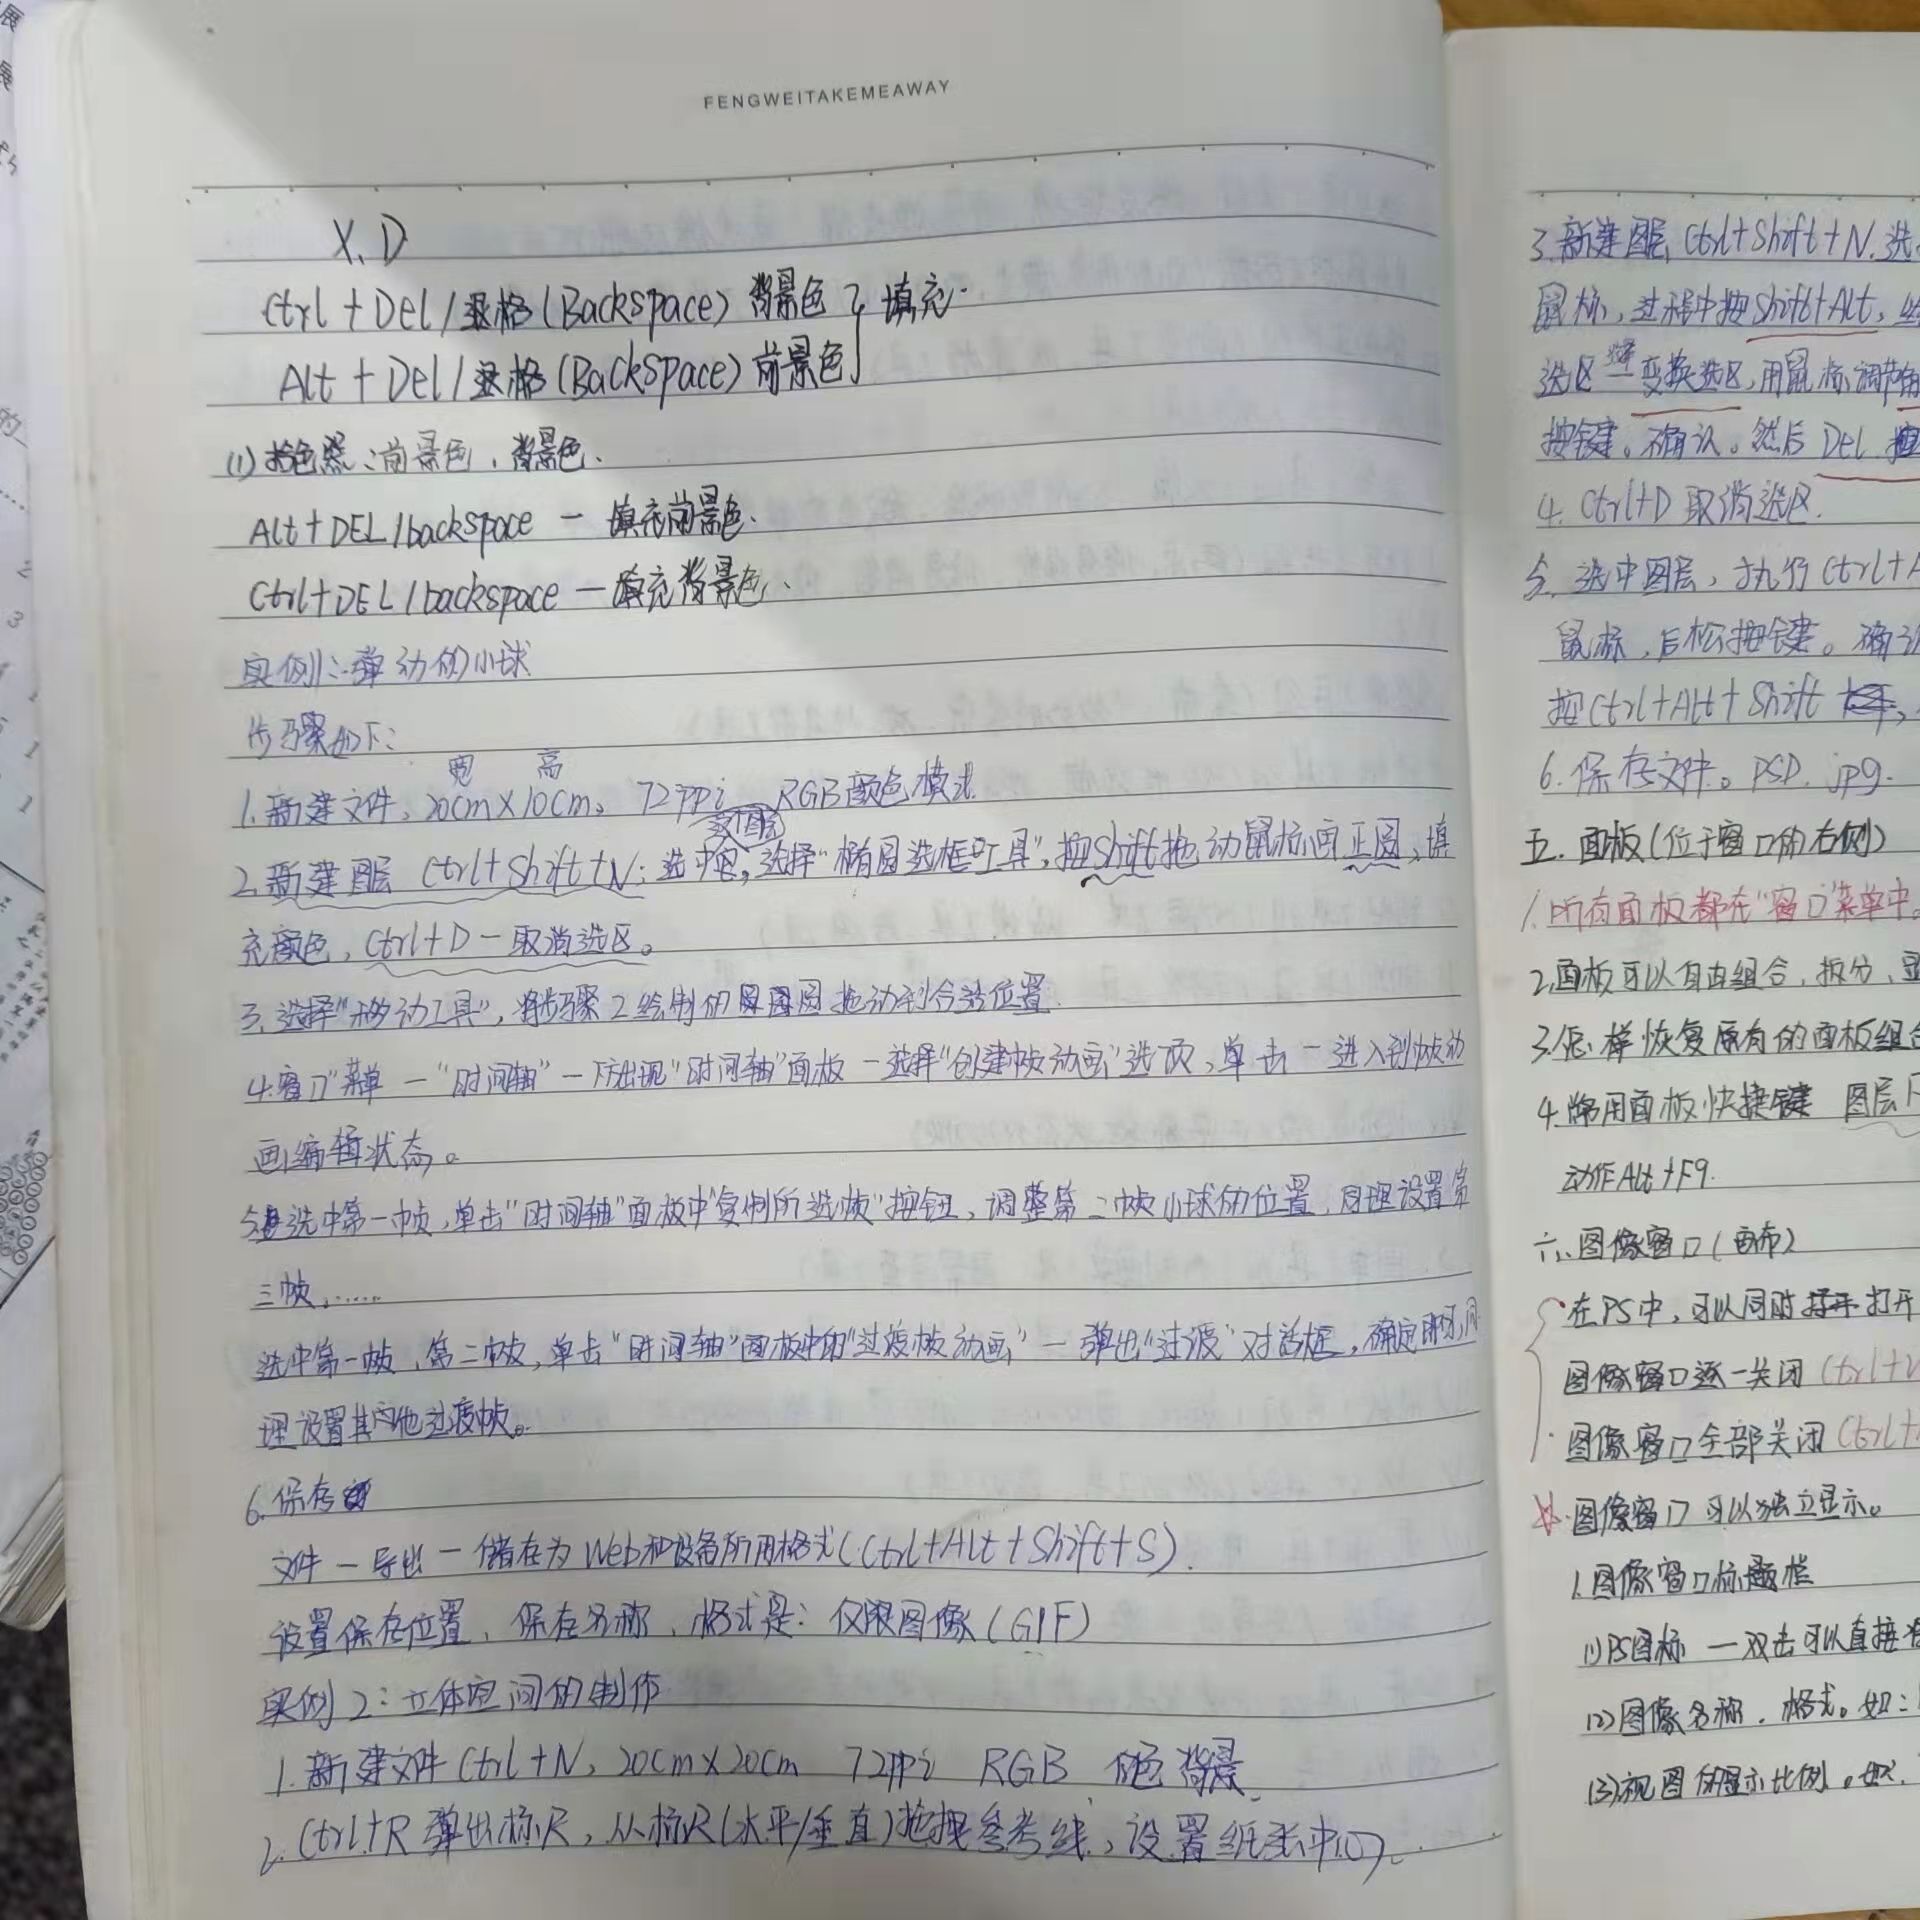 FENGWEITAKEMEAWAY
X.D
Ctrl+Del/退格(Backspace)背景色 } 填充.
Alt+Del/退格(Backspace)前景色
(1)拾色器:前景色,背景色.
Alt+DEL/backspace — 填充前景色.
Ctrl+DEL/backspace — 填充背景色.
实例1:弹动的小球
步骤如下:
宽 高
1.新建文件,20cm×10cm,72ppi RGB颜色模式
2.新建图层 Ctrl+Shift+N;选中,选择"椭圆选框工具",按Shift拖动鼠标画正圆,填
充颜色,Ctrl+D—取消选区。
3.选择"移动工具",将步骤2绘制的圆拖动到合适位置
4."窗口"菜单—"时间轴"—后出现"时间轴"面板—选择"创建帧动画"选项,单击—进入到帧动
画编辑状态。
5.选中第一帧,单击"时间轴"面板中"复制所选帧"按钮,调整第二帧小球的位置,同理设置第
三帧,……
选中第一帧,第二帧,单击"时间轴"面板中的"过渡帧动画"—弹出"过渡"对话框,确定即可,同
理设置其他过渡帧。
6.保存
文件—导出—储存为Web和设备所用格式(Ctrl+Alt+Shift+S).
设置保存位置,保存名称,格式是:仅限图像(GIF)
实例2:立体空间的制作
1.新建文件Ctrl+N,20cm×20cm 72ppi RGB 白色背景.
2.Ctrl+R弹出标尺,从标尺(水平/垂直)拖拽参考线,设置纸张中心.
3.新建图层,Ctrl+Shift+N.选
鼠标,过程中按Shift+Alt,
选区—变换选区,用鼠标调节角
按键。确认。然后Del
4.Ctrl+D取消选区.
5.选中图层,执行Ctrl+A
鼠标,后松按键。确认
按Ctrl+Alt+Shift
6.保存文件。PSD.jpg.
五.面板(位于窗口的右侧)
1.所有面板都在"窗口"菜单中。
2.面板可以自由组合,拆分,显
3.怎样恢复原有的面板组合
4.常用面板快捷键 图层F
动作Alt+F9.
六.图像窗口(画布)
在PS中,可以同时打开
图像窗口逐一关闭 Ctrl+W
图像窗口全部关闭 Ctrl+
图像窗口可以独立显示。
1.图像窗口标题栏
(1)PS图标—双击可以直接
(2)图像名称.格式。如:
(3)视图的显示比例。如: